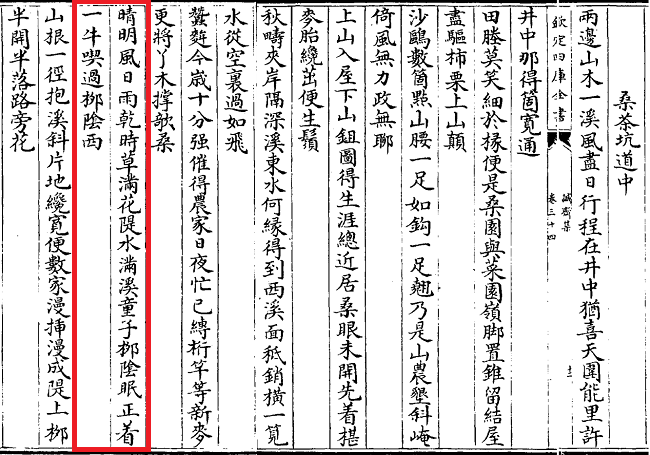 桑茶坑道中
兩邊山木一溪風盡日行程在井中猶喜天圍能里許
井中那得箇寬通
田塍莫笑細於椽便是桑園與菜園嶺脚置錐留結屋
盡驅柿栗上山顛
沙鷗數箇點山腰一足如鈎一足翹乃是山農墾斜崦
倚風無力政無聊
上山入屋下山鉏圖得生涯總近居桑眼未開先着椹
麥胎纔茁便生鬚
秋疇夾岸隔深溪東水何縁得到西溪面秪銷橫一筧
水從空裏過如飛
蠶麰今歳十分强催得農家日夜忙已縛桁竿等新麥
更將丫木撑欹桑
晴明風日雨乾時草滿花隄水滿溪童子栁陰眠正着
一牛喫過栁陰西
山根一徑抱溪斜片地纔寛便數家漫揷漫成隄上栁
半開半落路旁花
欽定四庫全書
誠齋集
卷三十四